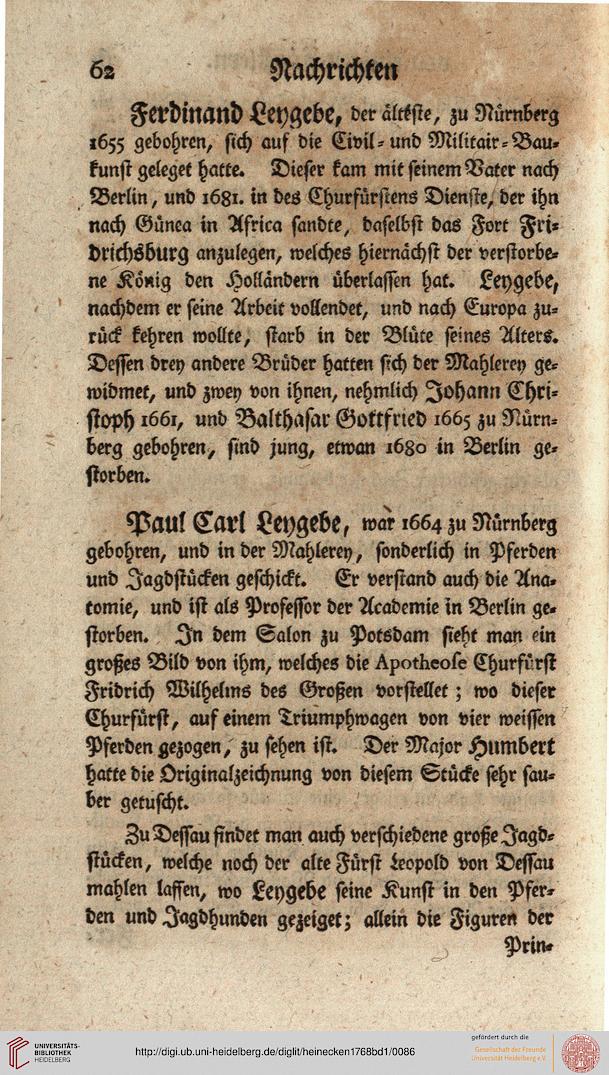 62 Nachrichten
Ferdinand Leygebe, der älteste, zu Nürnberg
1655 gebohren, sich auf die Civil- und Militair-Bau-
kunst geleget hatte. Dieser kam mit seinem Vater nach
Berlin, und 1681. in des Churfürstens Dienste, der ihn
nach Günea in Africa sandte, daselbst das Fort Fri-
drichsburg anzulegen, welches hiernächst der verstorbe-
ne König den Holländern überlassen hat. Leygebe,
nachdem er seine Arbeit vollendet, und nach Europa zu-
rück kehren wollte, starb in der Blüte seines Alters.
Dessen drey andere Brüder hatten sich der Mahlerey ge-
widmet, und zwey von ihnen, nehmlich Johann Chri-
stoph 1661, und Balthasar Gottfried 1665 zu Nürn-
berg gebohren, sind jung, etwan 1680 in Berlin ge-
storben.
Paul Carl Leygebe, war 1664 zu Nürnberg
gebohren, und in der Mahlerey, sonderlich in Pferden
und Jagdstücken geschickt. Er verstand auch die Ana-
tomie, und ist als Professor der Academie in Berlin ge-
storben. In dem Salon zu Potsdam sieht man ein
großes Bild von ihm, welches die Apotheose Churfürst
Fridrich Wilhelms des Großen vorstellet; wo dieser
Churfürst, auf einem Triumphwagen von vier weissen
Pferden gezogen, zu sehen ist. Der Major Humbert
hatte die Originalzeichnung von diesem Stücke sehr sau-
ber getuscht.
Zu Dessau findet man auch verschiedene große Jagd-
stücken, welche noch der alte Fürst Leopold von Dessau
mahlen lassen, wo Leygebe seine Kunst in den Pfer-
den und Jagdhunden gezeiget; allein die Figuren der
Prin-
UNIVERSITÄTS-
BIBLIOTHEK
HEIDELBERG
http://digi.ub.uni-heidelberg.de/diglit/heinecken1768bd1/0086
gefördert durch die
Gesellschaft der Freunde
Universität Heidelberg e.V.